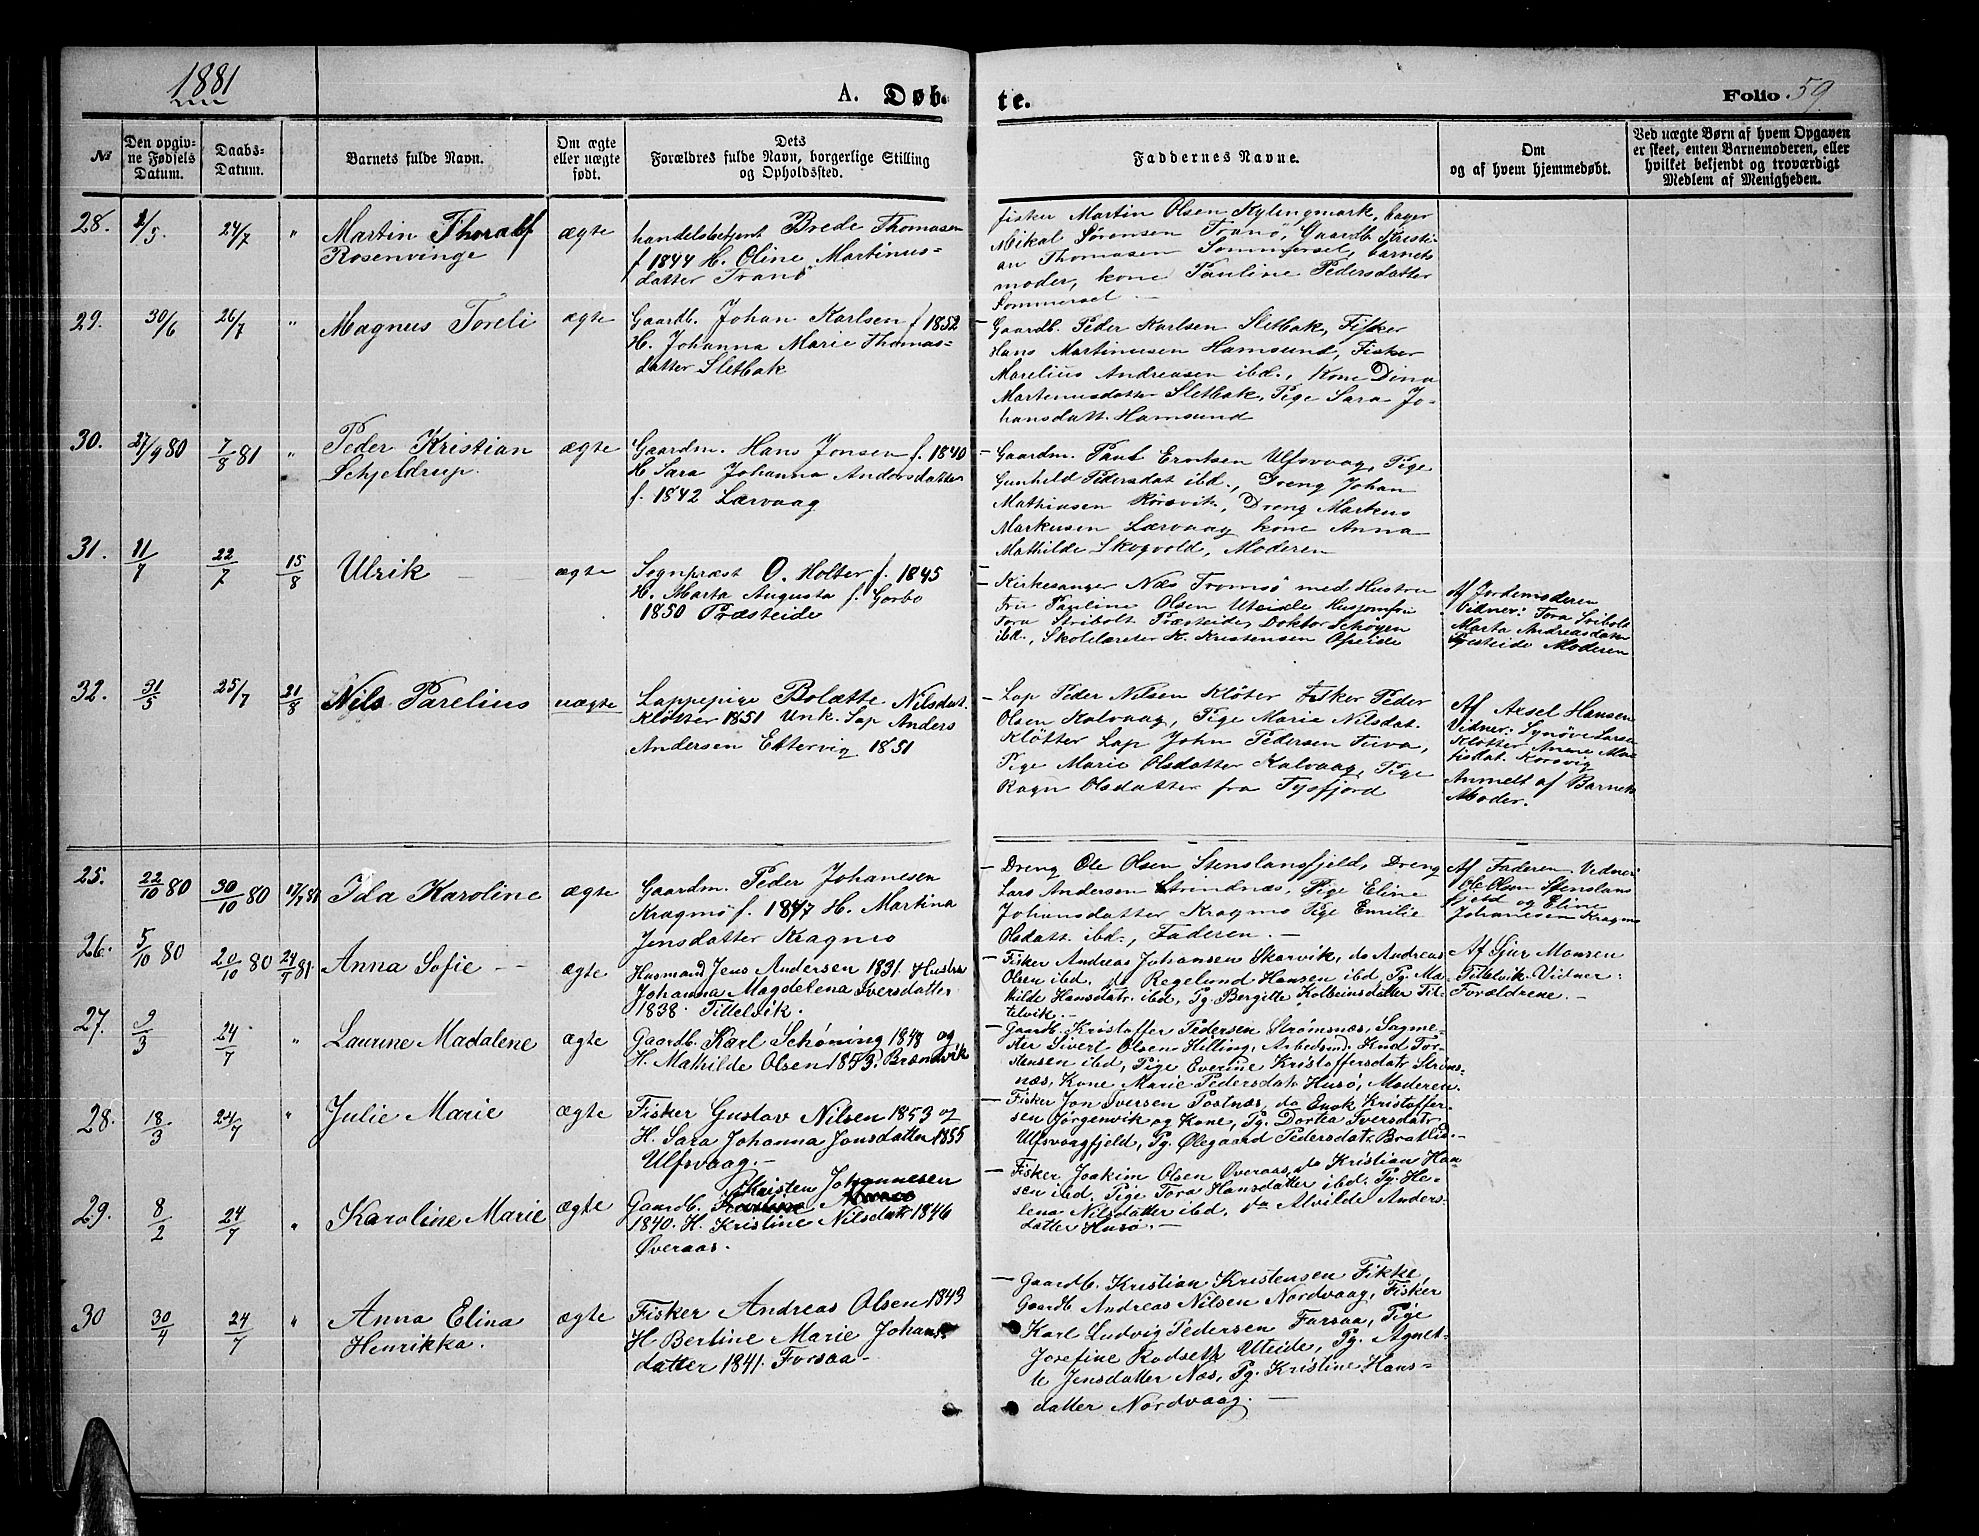 1881
A. Døb-
te.
Folio 59
№
Den opgiv-
ne Fødsels
Datum.
Daabs-
Datum.
Barnets fulde Navn.
Om ægte
eller uægte
født.
Dets
Forældres fulde Navn, borgerlige Stilling
og Opholdssted.
Faddernes Navne.
Om
og af hvem hjemmedøbt.
Ved uægte Børn af hvem Opgaven
er skeet, enten Barnemoderen, eller
hvilket bekjendt og troværdigt
Medlem af Menigheden.
28. 2/5. 24/7 "
Martin Thoralf
Rosenvinge
ægte
handelsbetjent Brede Thomasen
f 1844 H. Oline Martinus-
datter Tranö
fisker Martin Olsen Kylingmark, bager
Mikal Sörensen Tranö, Gaardb. Kristi-
an Thomasen Sommersel, barnets
moder, kone Pauline Pedersdatter
Sommersel —
29. 30/6 26/7 "
Magnus Toreli
ægte
Gaardb. Johan Karlsen f 1852
H. Johanna Marie Thomas-
datter Sletbak
— Gaardb. Peder Karlsen Sletbak, Fisker
Hans Martinusen Hamsund, Fisker
Marelius Andreasen ibd., Kone Dina
Martenusdatter Sletbak, Pige Sara Jo-
hansdatt. Hamsund
30. 27/9 80 7/8 81 "
Peder Kristian
Schjeldrup.
ægte
Gaardm. Hans Jonsen f. 1840
H Sara Johanna Andersdatter
f. 1842 Lærvaag
— Gaardm. Paul Evertsen Ulfsvaag, Pige
Gunhild Pedersdat ibd., Dreng Johan
Mathiasen Rörsvik, Dreng Markus
Markusen Lærvaag kone Anna
Mathilde Skogvold, Moderen
31. 11/7 22/7 15/8
Ulrik
ægte
Sognpræst O. Holter f. 1845
H. Marta Augusta f. Gorbo
1850 Præsteide
— Kirkesanger Næs Tromsö med Hustru
Fru Pauline Olsen Uteide Husjomfru
Tora Stribolt Præsteide, Doktor Schöyen
ibd., Skolelærer K. Kristensen Opeide
Af Jordemoderen
Vidner: Tora Stribolt
Marta Andreasdatter
Præsteide Moderen
32. 31/5 25/7 21/8
Nils Parelius
uægte
Lappepige Bolætte Nilsdat.
Kløtter 1851 Unk. Lap Anders
Andersen Ettervig 1851
— Lap Peder Nilsen Kløter Fisker Peder
Olsen Kalvaag, Pige Maria Nilsdat.
Kløtter Lap John Pedersen Tuva,
Pige Marie Olsdatter Kalvaag, Pige
Ragn Olsdatter fra Tysfjord
Af Axel Hansen
Vidner: Synöve Larsen
Klötter Anne Ma-
tisdat. Korsvig
Anmelt af Barnets
Moder.
25. 22/10 80 30/10 80 17/7 81
Ida Karoline
ægte
Gaardm. Peder Johanesen
Kragmø f. 1847 H. Martina
Jensdatter Kragmo
— Dreng Ole Olsen Stenslansfjeld, Dreng
Lars Andersen Strindnæs, Pige Eline
Johansdatter Kragmo Pige Emilie
Olsdatt. ibd., Faderen. —
Af Faderen Vidner
Ole Olsen Stenslans
fjeld og Eline
Johanesen Kragmo
26. 5/10 80 20/10 80 24/7 81.
Anna Sofie —
ægte
Husmand Jens Andersen 1831. Hustru
Johanna Magdelena Iversdatter
1838. Tittelvik.
— Fisker Andreas Johansen Skarvik, do Andreas
Olsen ibd. do Regelund Hansen ibd. Pg. Ma-
thilde Hansdatr. ibd, Pg. Bergitte Kolbeinsdatter Tit-
telvik. —
Af Gjur Monsen
Tittelvik. Vidner:
Forældrene. —
27. 9/3 24/7 "
Laurine Madalene
ægte
Gaardb. Karl Schøning 1848 og
H. Mathilde Olsen 1853. Brændvik
— Gaardb. Kristoffer Pedersen Strømsnæs, Sagme-
ster Sivert Olsen Hilling, Arbedsmd. Knud Tor-
stensen ibd, Pige Everine Kristoffersdatr. Ströms-
næs, Kone Marie Pedersdat. Husö, Moderen.
28. 18/3 24/7 "
Julie Marie
ægte
Fisker Gustav Nilsen 1853 og
H. Sara Johanna Jonsdatter 1855
Ulfsvaag. —
— Fisker Jon Iversen Postnæs, do Enok Kristoffer-
sen Jörgenvik og Kone, Pg. Dortea Iversdatr
Ulfsvaagfjeld, Pg. Ølegaard Pedersdat. Bratlie. —
29. 8/2 24/7 "
Karoline Marie
ægte
Kristen Johannesen
Gaardb.
1840. H. Kristine Nilsdatr. 1846
Øveraas.
— Fisker Joakim Olsen Øveraas, do Kristian Han-
sen ibd. Pige Tora Hansdatter ibd. Pg. He-
lena Nilsdatter ibd. do Alvilde Anders-
datter Husö. —
30 30/4 24/7 "
Anna Elina
Henrikka.
ægte
Fisker Andreas Olsen 1843
H. Bertine Marie Johans-
datter 1841. Forsaa —
— Gaardb. Kristian Kristensen Fikke,
Gaardb Andreas Nilsen Nordvaag, Fisker
Karl Ludvig Pedersen Forsaa, Pige
Josefine Rodseth Uteide, Pg. Agnet-
te Jensdatter Næs, Pg. Kristine Hans-
datter Nordvaag. —